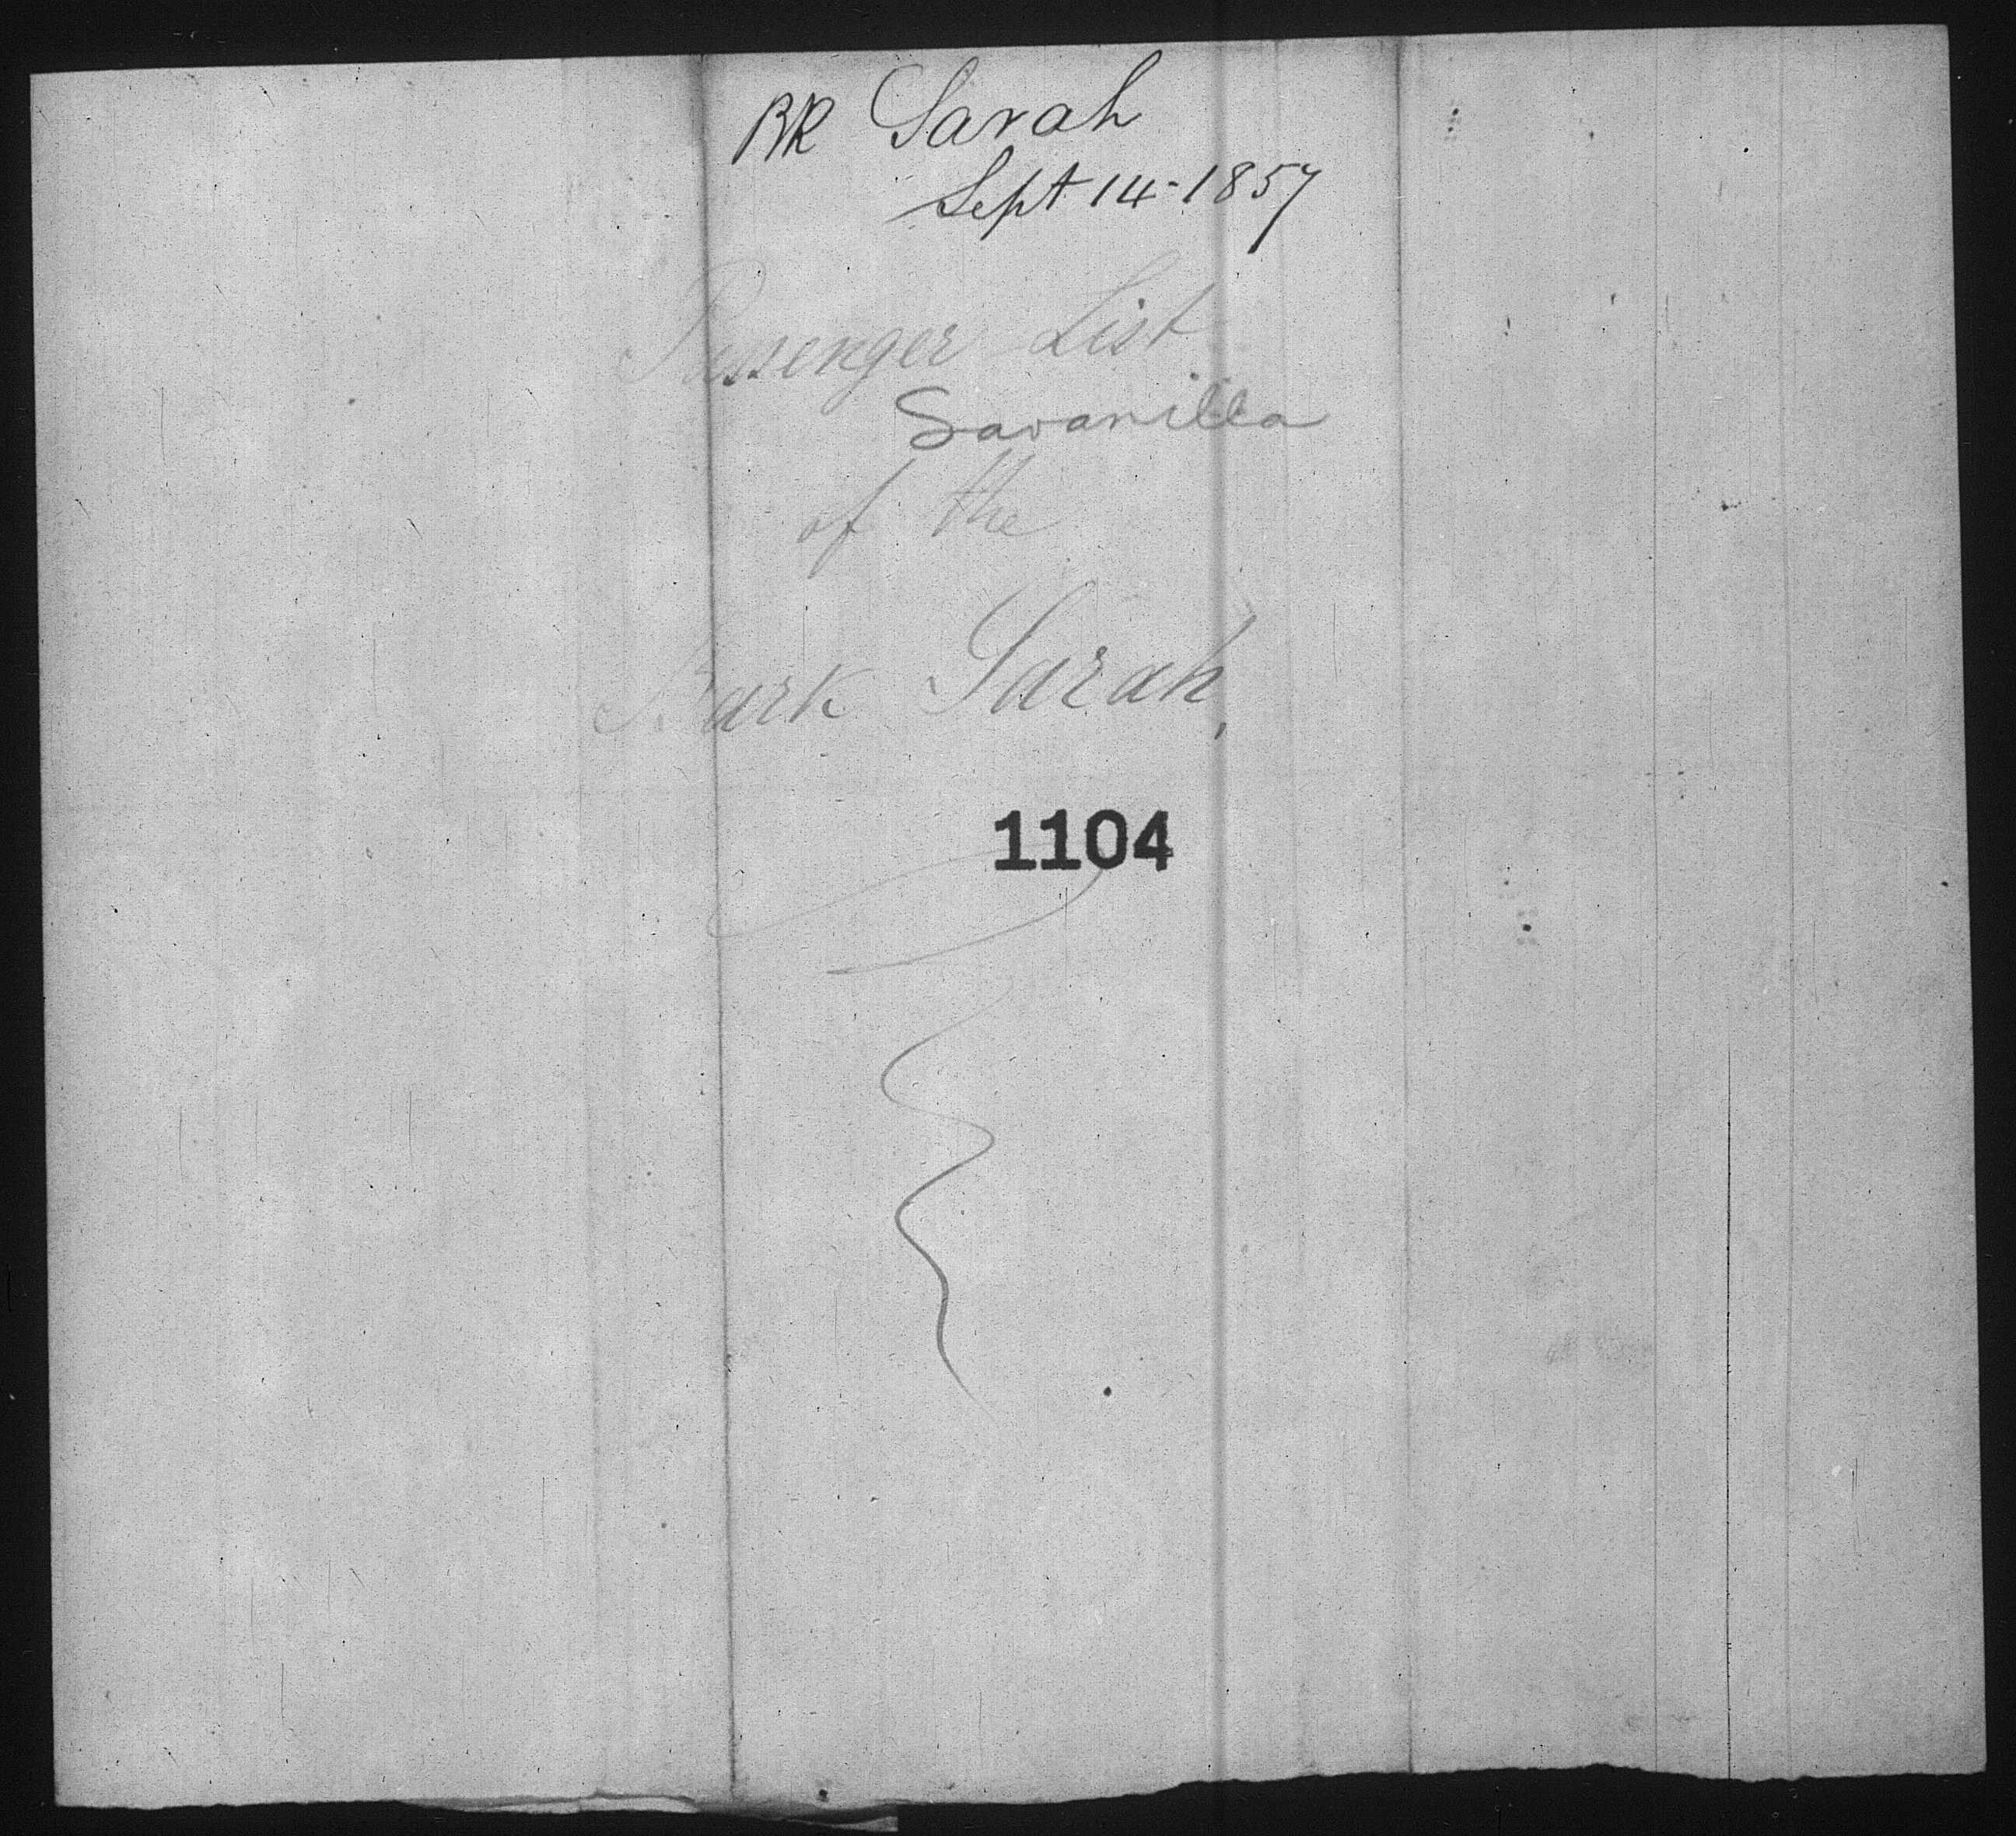 BK Sarah
Sept 14-1857
Passenger List
Savanilla
of the
Bark Sarah,
1104